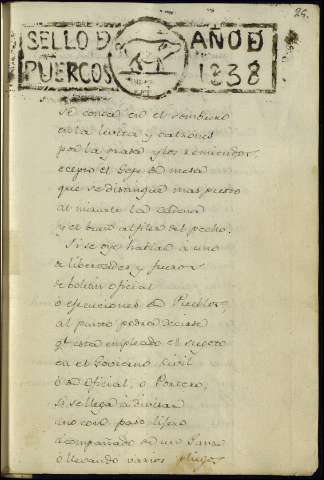 26.
SELLO D AÑO D
PUERCOS 1838
Se conoce en el sombrero
en la levita y calzones
por la grasa y los remiendos,
ecepto el Gefe de mesa
que se distingue mas puesto
al mirarle la cadena
y el buen alfiler del pecho.
Si se oye hablar á uno
de libertades y fueros
de boletin oficial
o ejecuciones de Pueblos,
al punto podrá decirse
qe. esta empleado el sugeto
en el Govierno Civil
ó de Oficial, o Portero,
si se llega á divisar
uno con paso ligero
acompañado de un
ó llevando varios pliegos